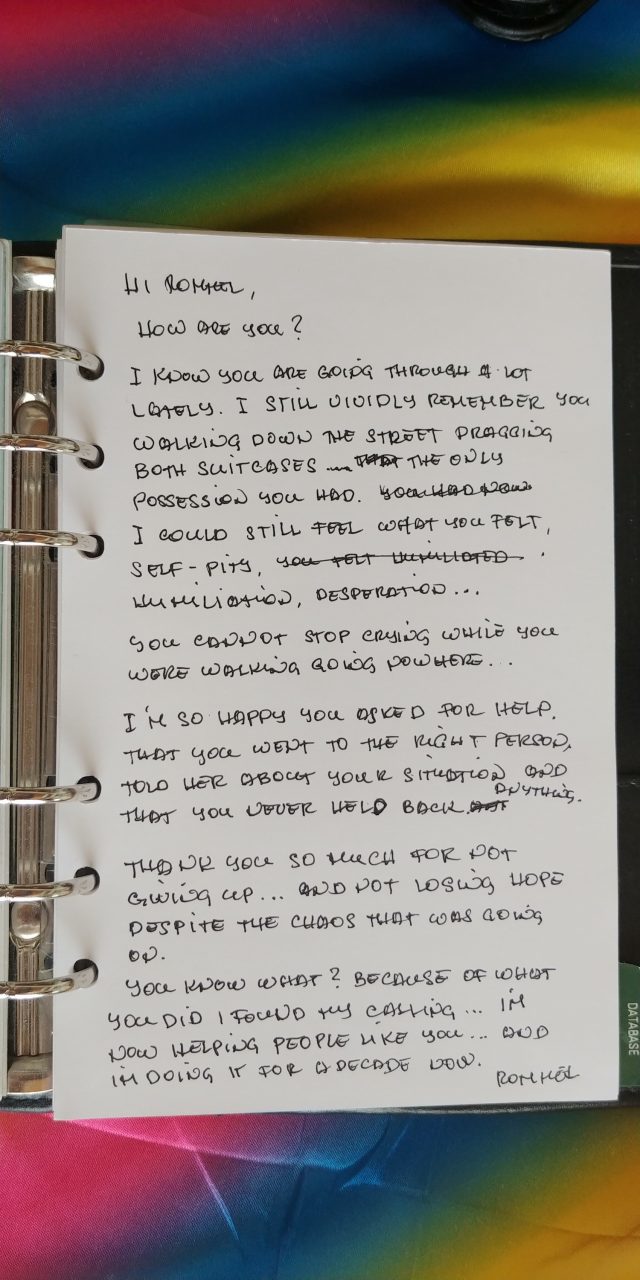 HI ROMMEL,
HOW ARE YOU?
I KNOW YOU ARE GOING THROUGH A LOT
LATELY. I STILL VIVIDLY REMEMBER YOU
WALKING DOWN THE STREET DRAGGING
BOTH SUITCASES ... THAT THE ONLY
POSSESSION YOU HAD. YOU HAD NOW
I COULD STILL FEEL WHAT YOU FELT,
SELF-PITY, YOU FELT HUMILIATED.
HUMILIATION, DESPERATION...
YOU CANNOT STOP CRYING WHILE YOU
WERE WALKING GOING NOWHERE...
I'M SO HAPPY YOU ASKED FOR HELP.
THAT YOU WENT TO THE RIGHT PERSON.
TOLD HER ABOUT YOUR SITUATION AND
THAT YOU NEVER HELD BACK ANYTHING.
THANK YOU SO MUCH FOR NOT
GIVING UP... AND NOT LOSING HOPE
DESPITE THE CHAOS THAT WAS GOING
ON.
YOU KNOW WHAT? BECAUSE OF WHAT
YOU DID I FOUND MY CALLING... IM
NOW HELPING PEOPLE LIKE YOU... AND
IM DOING IT FOR A DECADE NOW.
ROMMEL
DATABASE